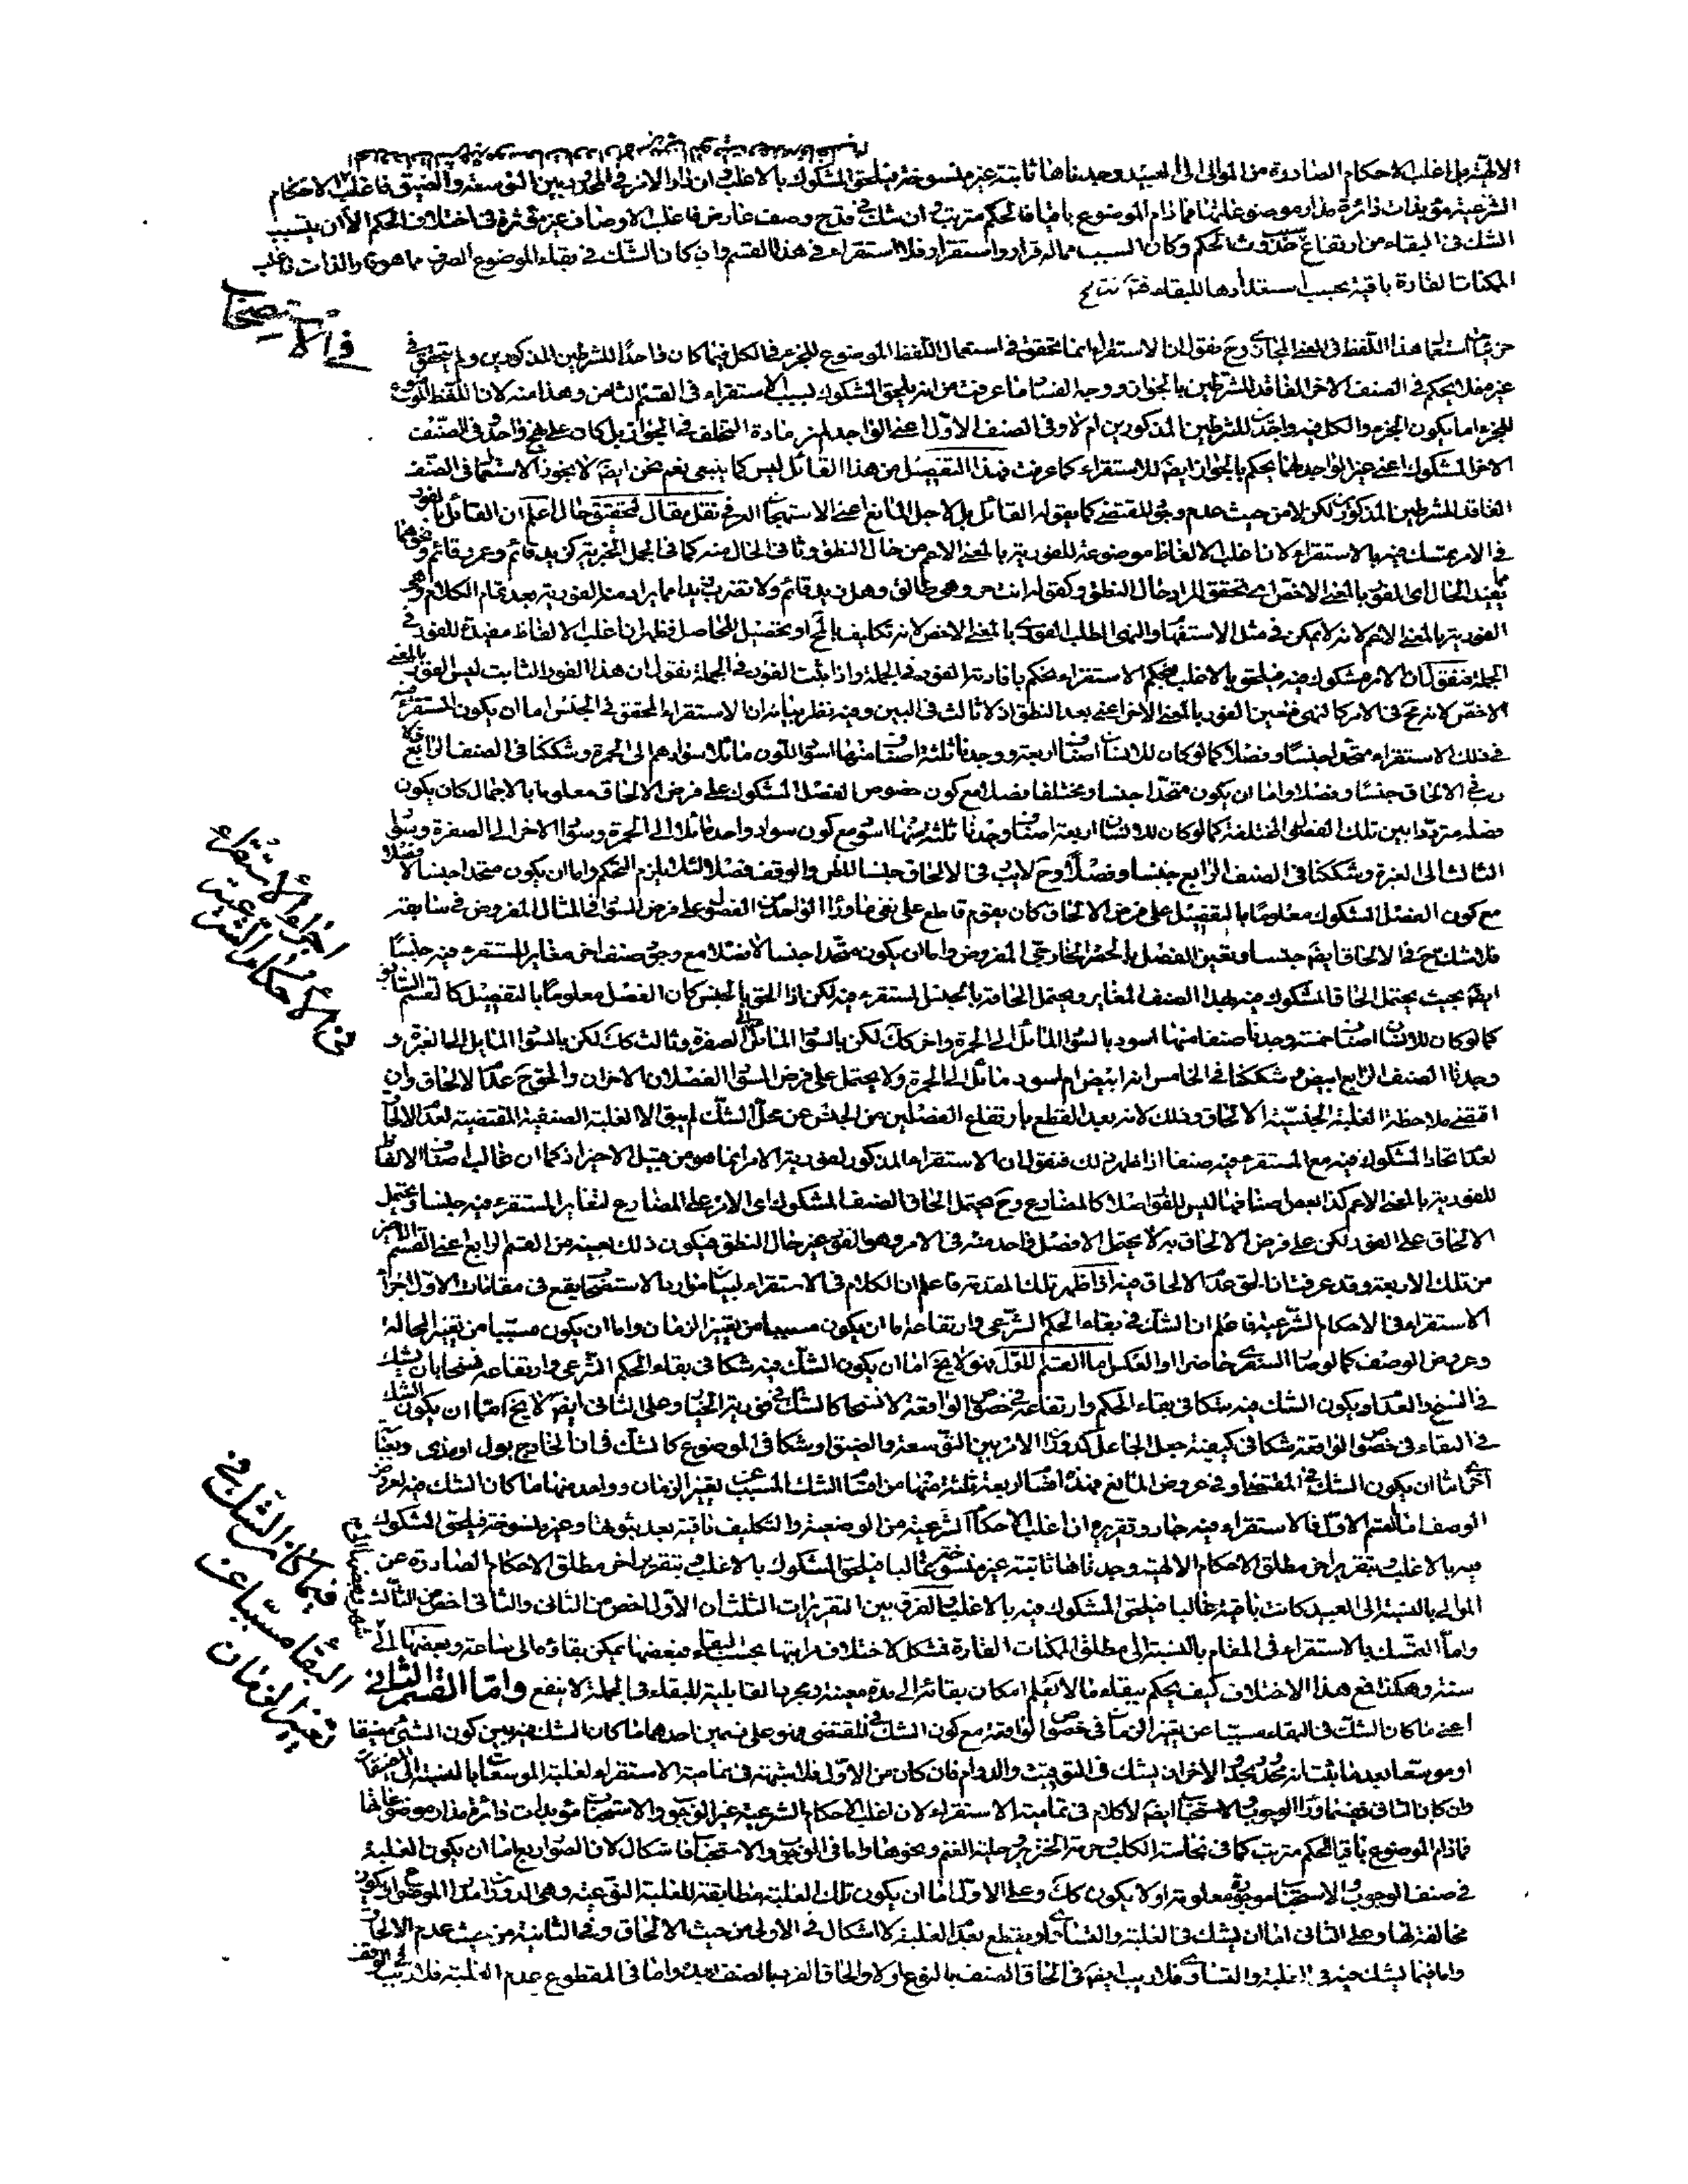 الالهية بل اغلب الاحكام الصادرة من الموالى الى العبيد وجدناها ثابتة غير منسوخة فيلحق المشكوك بالاغلب وان دار الامر فى المحدود بين التوسعة والضيق فاغلب الاحكام
الشرعية مؤبدات دائرة مدار موضوعاتها فما دام الموضوع باقيا فالحكم مترتب وان شك فى قدح وصف عارض فاغلب الاوصاف غير مؤثرة فى اختلاف الحكم الا ان يتسبب
الشك فى البقاء من ارتفاع سبب حدوث الحكم وكان السبب مما له قرار واستقرار فلا استقراء فى هذا القسم وان كان الشك فى بقاء الموضوع الصرف مما هو من الذات فاغلب
الممكنات القارة باقية بحسب استعدادها للبقاء
فى الاستصحاب
استعمال هذا اللفظ فى المعنى المجازى وح نقول ان الاستقراء انما يتحقق فى استعمال اللفظ الموضوع للجزء فى الكل فيما كان واجدا للشرطين المذكورين ولم يتحقق فى
غيره فلا يحكم فى الصنف الاخر الفاقد للشرطين بالجواز ووجه الفساد ما عرفت من انه يلحق المشكوك بسبب الاستقراء فى القسم الثامن وهذا منه لان اللفظ الموضوع
للجزء اما يكون الجزء والكل فيه واجدين للشرطين المذكورين ام لا وفى الصنف الاول اعنى الواجد لم نر مادة التخلف فى الجواز بل كان على نهج واحد وفى الصنف
الاخر المشكوك اعنى غير الواجد لهما يحكم بالجواز ايضا للاستقراء كما عرفت فهذا التفصيل من هذا القائل ليس كما ينبغى نعم نحن ايضا لا يجوز الاستعمال فى الصنف
الفاقد للشرطين المذكورين لكن لا من حيث عدم وجود المقتضى كما يقوله القائل بل لاجل المانع اعنى الاستهجان العرفى نقل مقال لتحقيق حال اعلم ان القائل بالفور
فى الامر يتمسك فيه بالاستقراء لان اغلب الالفاظ موضوعة للفورية بالمعنى الاعم من حال النطق وثانى الحال منه كما فى الجمل الخبرية كزيد قائم وعمرو قائم ونحوهما
مما يفيد الحال اى الفور بالمعنى الاخص اى تحقق المراد حال النطق وكقوله انت حر وهى طالق وهل زيد قائم ولا تضرب زيدا مما يراد منه الفورية بعد تمام الكلام وهو
الفورية بالمعنى الاعم لانه لا يمكن فى مثل الاستفهام والنهى طلب الفور بالمعنى الاخص لانه تكليف بالمحال او تحصيل للحاصل فظهر ان اغلب الالفاظ مفيدة للفور فى
الجملة فنقول ان الامر مشكوك فيه فيلحق بالاغلب بحكم الاستقراء فيحكم بافادته الفور فى الجملة واذا ثبت الفور فى الجملة نقول ان هذا الفور الثابت ليس الفور بالمعنى
الاخص لانه مح فى الامر كالنهى فتعين الفور بالمعنى الاخر اعنى بعد النطق اذ لا ثالث فى البين وفيه نظر بيانه ان الاستقراء المحقق فى الجنس اما ان يكون المستقرء فيه
فى ذلك الاستقراء متحدا جنسا وفصلا كما لو كان للانسان اصناف اربعة ووجدنا ثلثة اصناف منها اسود اللون مائلا سوادهم الى الحمرة وشككنا فى الصنف الرابع فلا
ريب فى الالحاق جنسا وفصلا واما ان يكون متحدا جنسا ومختلفا فصلا مع كون خصوص الفصل المشكوك على فرض الالحاق معلوما بالاجمال كان يكون
فصله مرددا بين تلك الفصول المختلفة كما لو كان للانسان اربعة اصناف وجدنا ثلثة منها اسود مع كون سواد واحد مائلا الى الحمرة وسواد الاخر الى الصفرة وسواد
الثالث الى الغبرة وشككنا فى الصنف الرابع جنسا وفصلا وح لا ريب فى الالحاق جنسا للظن والوقف فصلا لئلا يلزم التحكم واما ان يكون متحدا جنسا لا فصلا
مع كون الفصل المشكوك معلوما بالتفصيل على فرض الالحاق كان يقوم قاطع على نفى ما وراء الواحد من الفصول على فرض السواد فى المثال المفروض فى سابقه
فلا شك ح فى الالحاق ايضا جنسا وتعين الفصل بالحصر الخارجى المفروض واما ان يكون متحدا جنسا لا فصلا مع وجود صنف اخر مغاير المستقرء فيه جنسا
ايضا بحيث يحتمل الحاق المشكوك فيه بهذا الصنف المغاير ويحتمل الحاقه بالجنس المستقرء فيه لكن اذا الحق بالجنس كان الفصل معلوما بالتفصيل كالقسم السابق
كما لو كان للانسان اصناف خمسة وجدنا صنفا منها اسود بالسواد المائل الى الحمرة واخر كك لكن بالسواد المائل الى الصفرة وثالث كك لكن بالسواد المايل الى الغبرة و
وجدنا الصنف الرابع ابيض وشككنا فى الخامس انه ابيض ام اسود مائل الى الحمرة ولا يحتمل على فرض السواد الفصلان الاخران والحق ح عدم الالحاق وان
اقتضى ملاحظة الغلبة الجنسية الالحاق وذلك لانه بعد القطع بارتفاع الفصلين من الجنس عن محل الشك لم يبق الا الغلبة الصنفية المقتضية لعدم الالحاق
لعدم اتحاد المشكوك فيه مع المستقرء فيه صنفا اذا ظهر ذلك فنقول ان الاستقراء المذكور لفورية الامر انما هو من قبيل الاخير اذ كما ان غالب اصناف الالفاظ
للفورية بالمعنى الاعم كذا بعض اصنافها ليس للفور اصلا كالمضارع وح يحتمل الحاق الصنف المشكوك اى الامر على المضارع المغاير المستقرء فيه جنسا ويحتمل
الالحاق على الفور لكن على فرض الالحاق به لا يحتمل الا فصل واحد منه فى الامر وهو الفور غير حال النطق فيكون ذلك بعينه من القسم الرابع اعنى القسم الاخير
من تلك الاربعة وقد عرفت ان الحق عدم الالحاق فيه اذا ظهر تلك المقدمة فاعلم ان الكلام فى الاستقراء لبيان موارد الاستصحاب يقع فى مقامات الاول اجراء
الاستقراء فى الاحكام الشرعية فاعلم ان الشك فى بقاء الحكم الشرعى وارتفاعه اما ان يكون مسببا من تغير الزمان واما ان يكون مسببا من تغير الحالة
وعروض الوصف كما لو صار السفرى حاضرا او العكس اما القسم الاول فهو لا يخ اما ان يكون الشك فيه شكا فى بقاء الحكم الشرعى وارتفاعه نسخا بان يشك
فى النسخ والعدم او يكون الشك فيه شكا فى بقاء الحكم وارتفاعه فى خصوص الواقعة لا نسخا كالشك فى فورية الخيار وعلى الثانى ايضا لا يخ اما ان يكون الشك
فى البقاء فى خصوص الواقعة شكا فى كيفية جعل الجاعل كدوران الامر بين التوسعة والضيق او شكا فى الموضوع كالشك فى ان الخارج بول او مذى وبعبارة
اخرى اما ان يكون الشك فى المقتضى او فى عروض المانع فهذه اقسام اربعة ثلثة منها من اقسام الشك المسبب عن تغير الزمان وواحد منها ما كان الشك فيه لعروض
الوصف اما القسم الاول فالاستقراء فيه جار وتقريره ان اغلب الاحكام الشرعية من الوضعية والتكليف باقية بعد ثبوتها وغير منسوخة فيلحق المشكوك
فيه بالاغلب وبتقرير اخر مطلق الاحكام الالهية وجدناها ثابتة غير منسوخة غالبا فيلحق المشكوك بالاغلب وبتقرير اخر مطلق الاحكام الصادرة عن
الموالى بالنسبة الى العبيد كانت باقية غالبا فيلحق المشكوك فيه بالاغلب والفرق بين التقريرات الثلث ان الاول اخص من الثانى والثانى اخص من الثالث
واما التمسك بالاستقراء فى المقام بالنسبة الى مطلق الممكنات القارة فمشكل لاختلاف مراتبها بحسب البقاء فبعضها يمكن بقاؤه الى ساعة وبعضها الى
سنة وهكذا فمع هذا الاختلاف كيف يحكم ببقاء ما لا يعلم امكان بقائه الى مدة معينة ومجرد القابلية للبقاء فى الجملة لا ينفع واما القسم الثانى
اعنى ما كان الشك فى البقاء مسببا عن تغير الزمان فى خصوص الواقعة مع كون الشك فى المقتضى فهو على قسمين احدهما ما كان الشك فيه بين كون الشئ مضيقا
او موسعا بعد ما ثبت انه محدود بحد الاخر ان يشك فى التوقيت والدوام فان كان من الاول فلا شبهة فى تمامية الاستقراء لغلبة الموسعات بالنسبة الى المضيقات
وان كان الثانى ففيما وراء الوجوب والاستحباب ايضا لا كلام فى تمامية الاستقراء لان اغلب الاحكام الشرعية غير الوجوب والاستحباب مؤبدات دائرة مدار موضوعاتها
فما دام الموضوع باقيا فالحكم مترتب كما فى نجاسة الكلب وحرمة الخنزير وحلية الغنم ونحوها واما فى الوجوب والاستحباب فاشكال لان الصور اربع اما ان يكون الغلبة
فى صنف الوجوب والاستحباب موجودة معلومة او لا يكون كك وعلى الاول اما ان يكون تلك الغلبة مطابقة للغلبة النوعية وهى الدوران مدار الموضوع او يكون
مخالفة لها وعلى الثانى اما ان يشك فى الغلبة والتساوى او يقطع بعدم الغلبة لا اشكال فى الاولى من حيث الالحاق وفى الثانية من حيث عدم الالحاق
واما فيما يشك فيه فى الغلبة والتساوى فلا ريب ايضا فى الحاق الصنف بالنوع اولا والحاق الفرد بالصنف بعده واما فى المقطوع عدم الغلبة فلا ريب فى الوقف
اجراء الاستقراء
فى الاحكام الشرعية
فيما كان الشك فى
البقاء مسببا عن
تغير الزمان